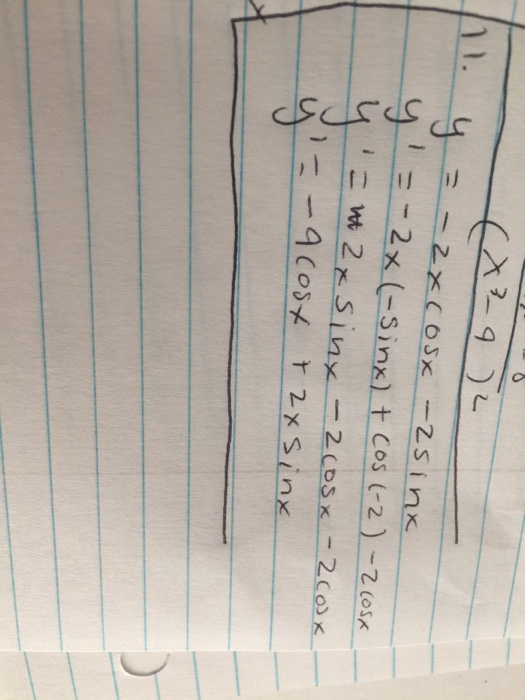 (x² - 9)²
11. y = -2xcosx - 2sinx
y' = -2x(-sinx) + cos(-2) - 2cosx
y' = 2xsinx - 2cosx - 2cosx
y' = -4cosx + 2xsinx